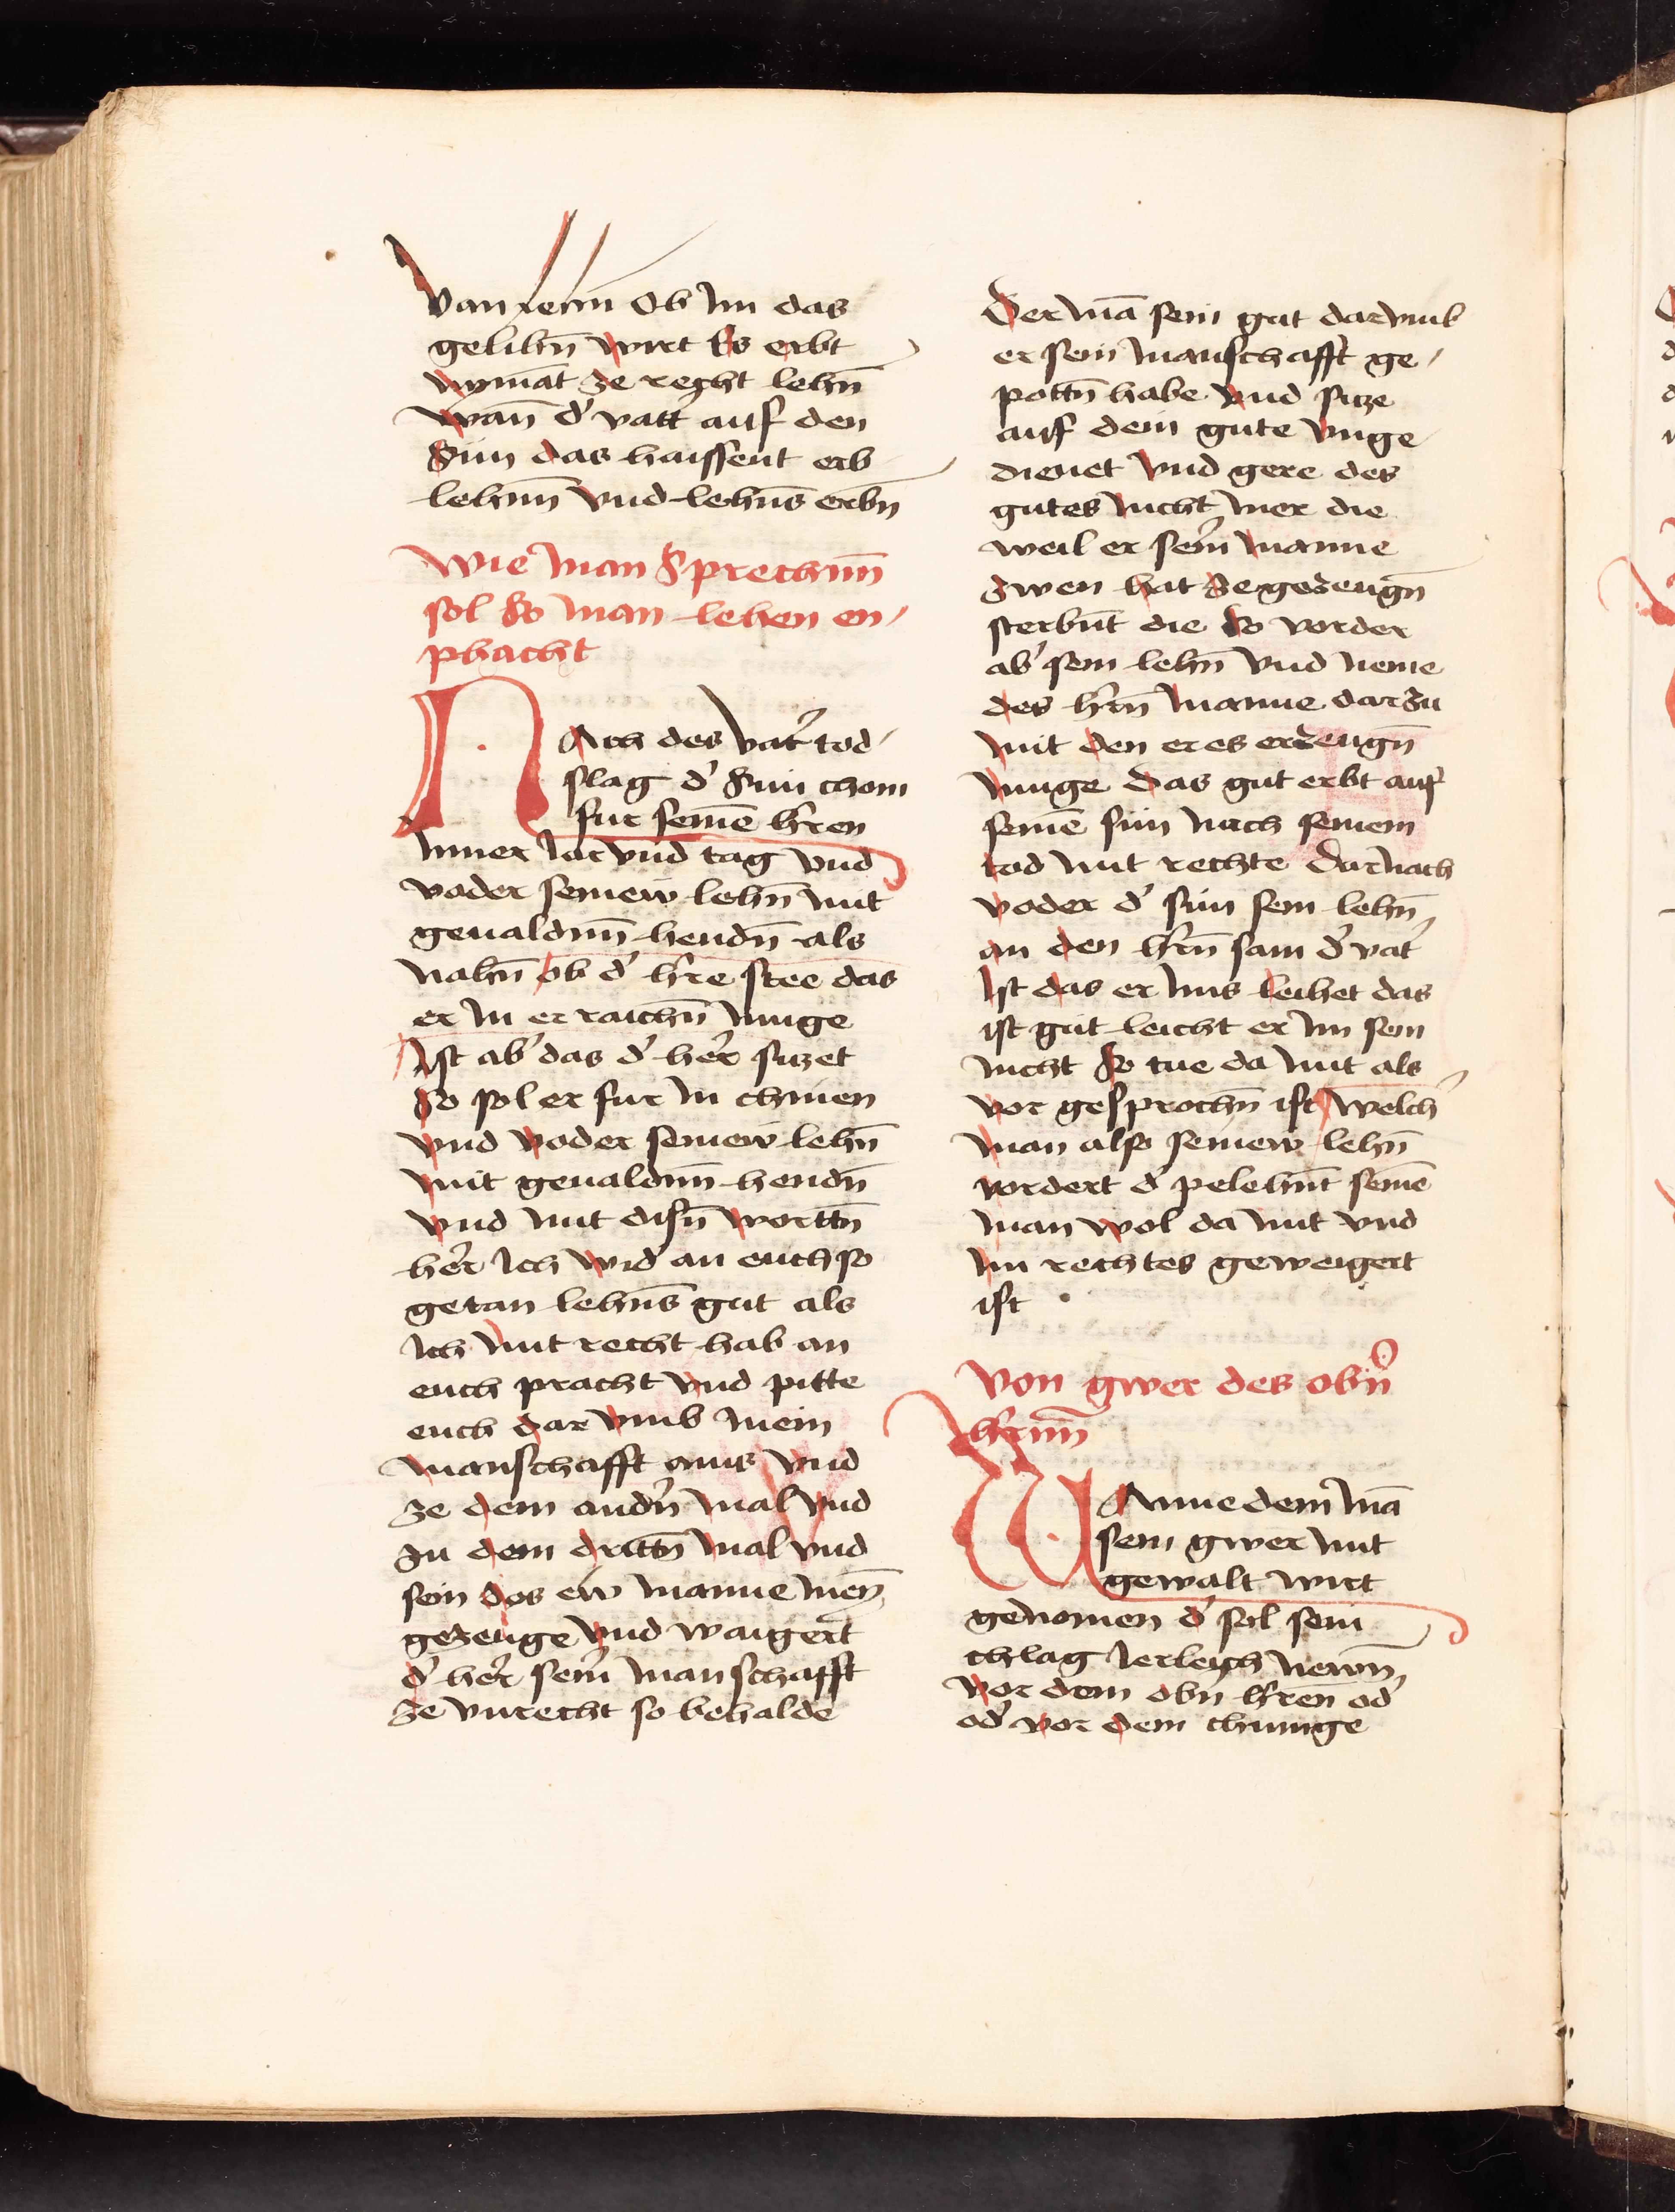 van seim Ob im das
gelihn̄ wirt Es erbt
nymāt ze reght lehn̄
wan̄ d' vatt' auf den
Sun das haissent erb
lehnn̄ vnd lehns̄ erbn̄
Wie man Sprechnn̄
sol So man lehen en-
phacht
NAch des vat' tod
slag d' Sun chom
fur seinē h'ren
Inner Iar vnd tag vnd
voder seinew lehn̄ mit
geualdnn̄ hendn̄ als
nahn̄ ob d' h're stee das
er In er raichn̄ muge
Ist ab' das d' her' sizet
So sol er fur In chnien
vnd voder seinew lehn̄
mit geualdnn̄ hendn̄
vnd mit disn̄ worttn̄
her' Ich vod' an euch so
getan lehns̄ gut als
Ich mit recht hab an
euch pracht vnd pitte
euch dar vmb mein
manschafft ains vnd
ze dem andn̄ mal vnd
zu dem drittn̄ mal vnd
sein des ew manne mein
gezeuge vnd waigert
d' her' sein' manschafft
ze vnrecht so behalde
Der mā sein gut darvmb
er sein manschafft ge-
pottn̄ habe vnd size
auf dem gute vnge
dienet vnd gere des
gutes nicht mer die
weil er sein' manne
zwen hat ze gezeugn̄
sterbnt̄ die So vorder
ab' sein lehn̄ vnd neme
des h'rn̄ manne darzu
mit den er es erzeugn̄
muge Das gut erbt auf
seinē sun nach seinem
tod mit rechte Darnach
voder d' sun sein lehn̄
an den h'rn̄ sam d' vat'
Ist das er Ims leihet das
ist gut leicht er Im sein
nicht So tue da mit als
vor gesprochn̄ ist Welch'
man also seinew lehn̄
vordert d' pelehnt̄ seinē
man wol da mit vnd
Im rechtes geweigert
ist
Von gwer des obn̄
h'rnn̄
WAnne dem mā
sein gwer mit
gewalt wirt
genomen d' sol sein
chlag Ierleich newn̄
vor dem obn̄ h'ren̄ od'
od' vor dem chunige